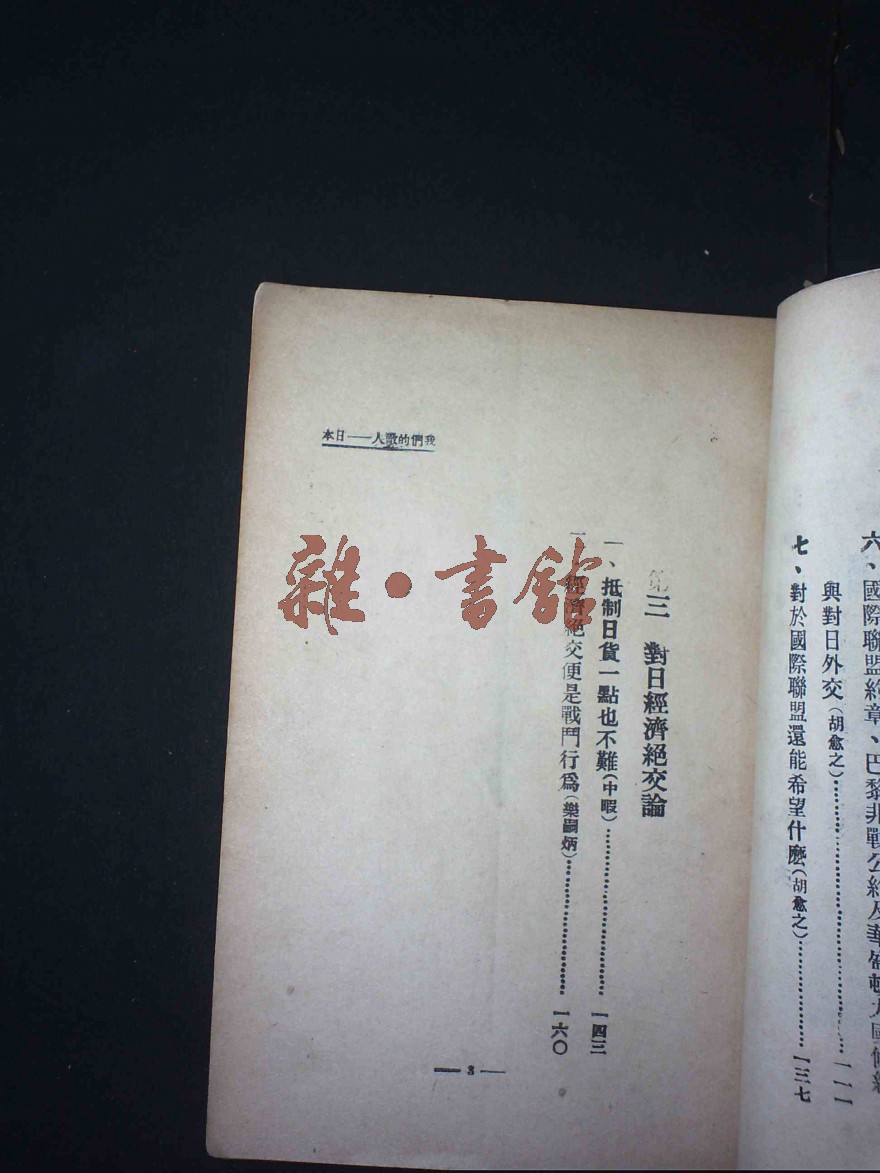 六、國際聯盟約章、巴黎非戰公約及華盛頓九國條約
與對日外交(胡愈之)……一一一
七、對於國際聯盟還能希望什麼(胡愈之)……一三七
我們的敵人——日本
第三　對日經濟絕交論
一、抵制日貨一點也不難(中暇)……一四三
二、經濟絕交便是戰鬥行爲(樂嗣炳)……一六〇
— 3 —
雜·書館